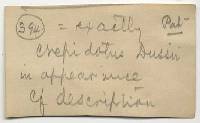 394 = exactly Pat-
Crepidotus Dussii
in appearance
Cf description